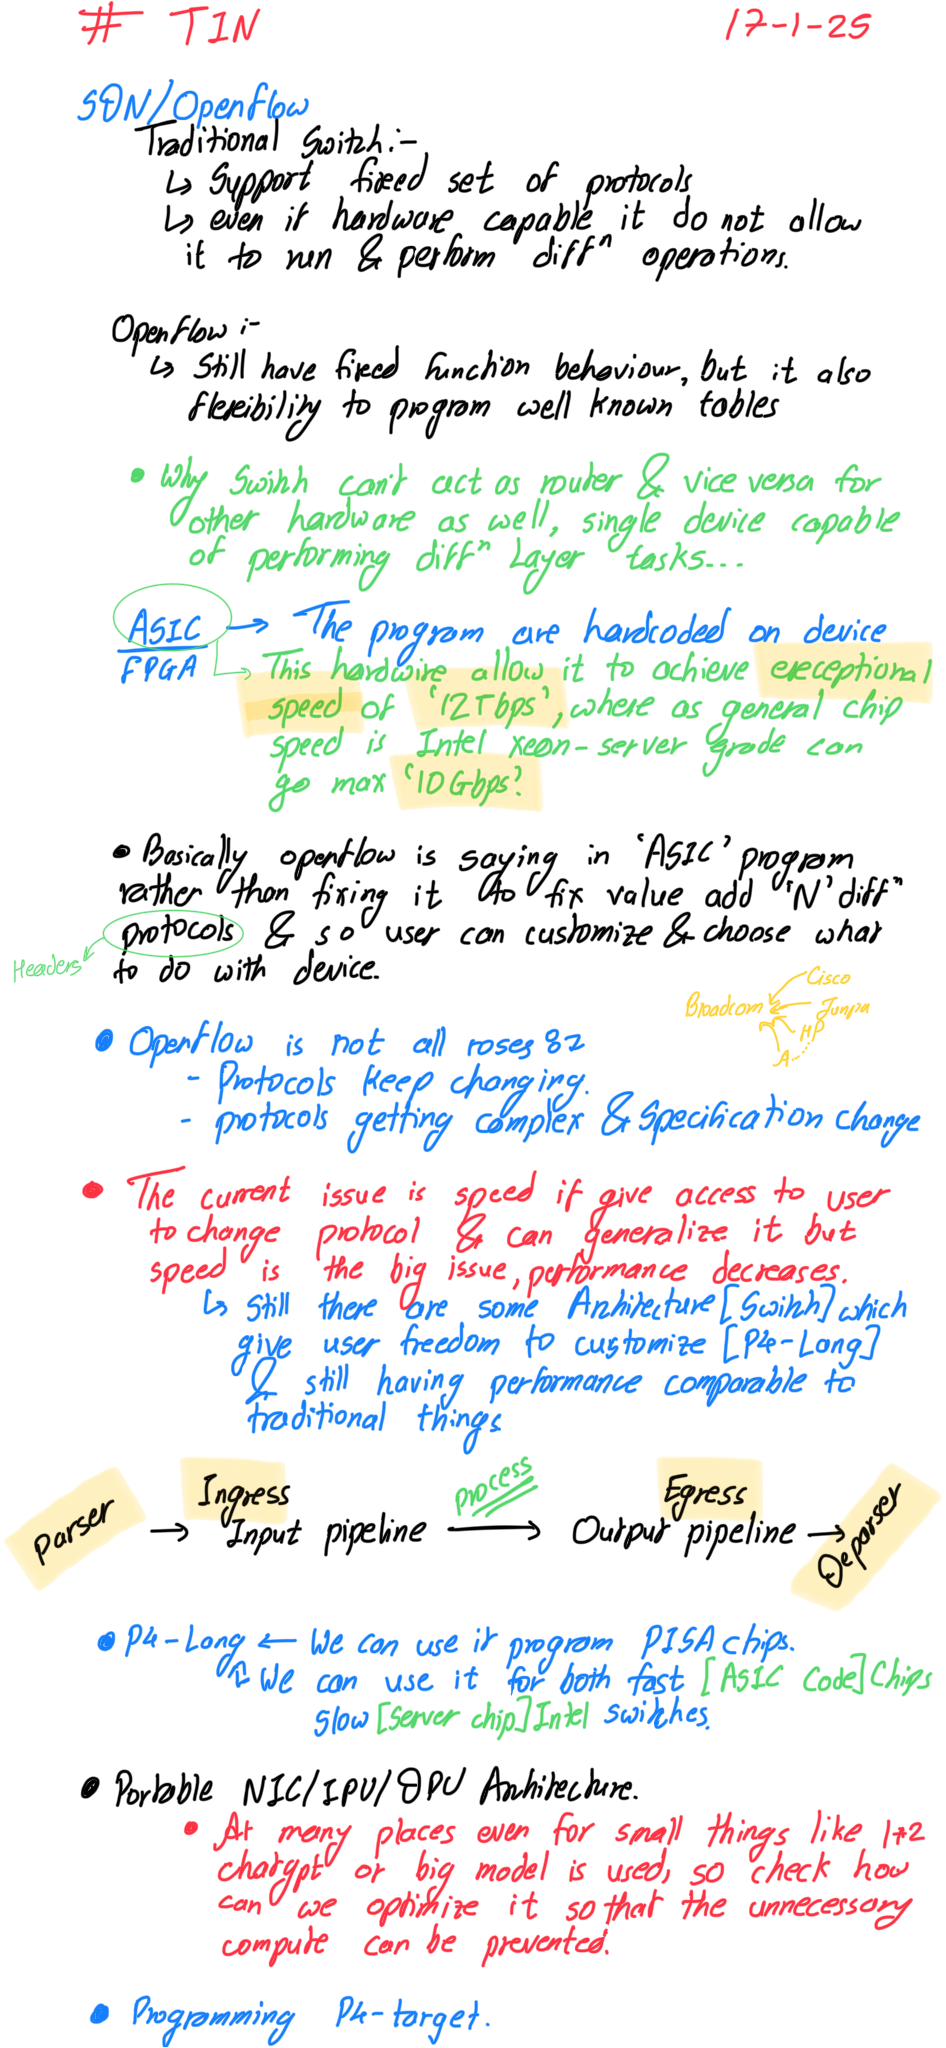 # TIN 17-1-25
SDN/Openflow
Traditional Switch:-
↳ Support fixed set of protocols
↳ even if hardware capable it do not allow
it to run & perform diffⁿ operations.
Openflow :-
↳ Still have fixed function behaviour, but it also
flexibility to program well known tables
• Why Switch can't act as router & vice versa for
other hardware as well, single device capable
of performing diffⁿ Layer tasks...
ASIC → The program are hardcoded on device
FPGA
↳ This hardwire allow it to achieve exceptional
speed of '12Tbps', where as general chip
speed is Intel xeon-server grade can
go max '10Gbps'.
• Basically openflow is saying in 'ASIC' program
rather than fixing it to fix value add 'N' diffⁿ
protocols & so user can customize & choose what
Headers
to do with device.
Cisco
Broadcom
HP
A
• Openflow is not all roses
- Protocols keep changing.
- protocols getting complex & Specification change
• The current issue is speed if give access to user
to change protocol & can generalize it but
speed is the big issue, performance decreases.
↳ Still there are some Architecture [Switch] which
give user freedom to customize [P4-Lang]
& still having performance comparable to
traditional things
Parser → Ingress Input pipeline process → Egress Output pipeline → Deparser
• P4-Lang ← We can use it program PISA chips.
↖ We can use it for both fast [ASIC Code] Chips
Slow [Server chip] Intel switches.
• Portable NIC/IPU/DPU Architecture.
• At many places even for small things like 1+2
chatgpt or big model is used, so check how
can we optimize it so that the unnecessary
compute can be prevented.
• Programming P4-target.